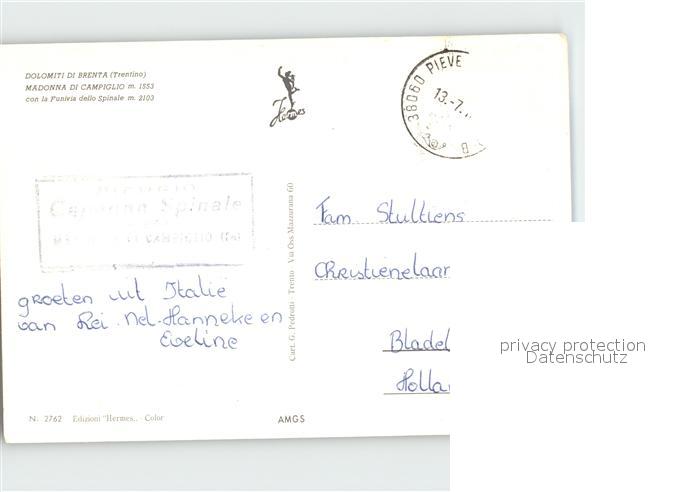 DOLOMITI DI BRENTA (Trentino)
MADONNA DI CAMPIGLIO m. 1553
con la Funivia dello Spinale m. 2103
Hermes
38060 PIEVE
13.-7.
Capanna Spinale
DI CAMPIGLIO
groeten uit Italie
van Rei. Nel-Hanneke en
Eveline
Cart. G. Pedrotti - Trento - Via Oss Mazzurana 60
Fam. Stultiens
Christienelaar
Bladel
Holla
privacy protection
Datenschutz
N. 2762 Edizioni "Hermes.. - Color
AMGS